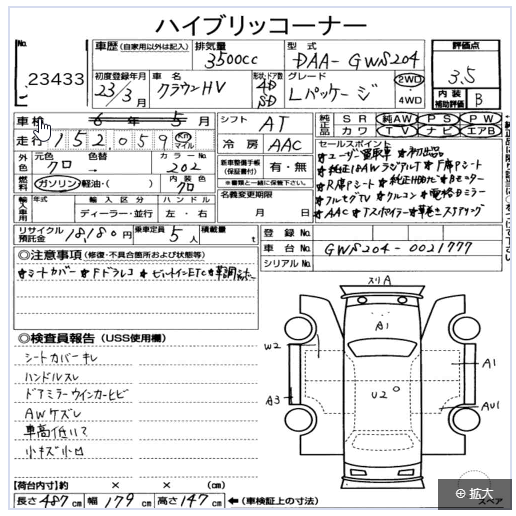 ハイブリッコーナー
No.
23433
車歴 (自家用以外は記入)
排気量
3500cc
型式
DAA-GWS204
評価点
3.5
初度登録年月
23/3月
車名
クラウンHV
形状・ドア数
4D
SD
グレード
Lパッケージ
2WD
4WD
内装
補助評価
B
車検
6年5月
走行
152,059
Km
マイル
シフト
AT
冷房
AAC
純正品
SR
純AW
PS
PW
カワ
TV
ナビ
エアB
外色
元色
クロ
色替
カラーNo.
202
内装色
クロ
燃料
ガソリン・軽油・( )
新車整備手帳
(保証書付)
有・無
※書類と一緒に保管下さい。
セールスポイント
★ユーザー買取車
★純正18AWラジアルT
★フルセグTV ★クルコン
★AAC
輸入車用
年式
輸入区分
ディーラー・並行
ハンドル
左・右
名義変更期限
月 日
リサイクル
預託金
18,180円
乗車定員
5人
積載量
t
登録No.
車台No.
GWS204-0021777
シリアルNo.
◎注意事項 (修復・不具合箇所および状態等)
★シートカバー ★Fドラレコ ★ビルトインETC
◎検査員報告 (USS使用欄)
シートカバーキレ
ハンドルスレ
ドアミラーウインカーヒビ
AWケズレ
車高低いて
小キズ小凹
スリA
A1
W2
A1
A3
U2
AU1
【荷台内寸】約 × × (cm)
長さ 487 cm 幅 179 cm 高さ 147 cm ←(車検証上の寸法)
スペア
拡大